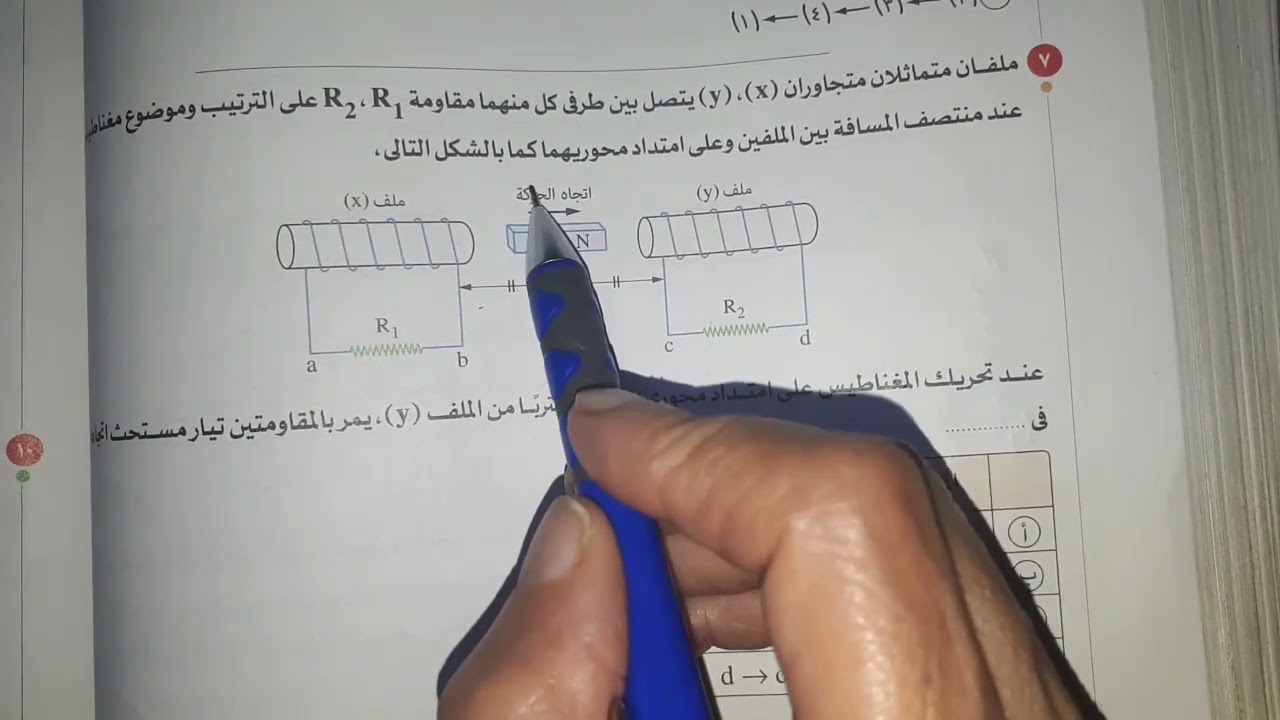 (١)←(٤)←(٣)←(٢)
٧
ملفان متماثلان متجاوران (x)، (y) يتصل بين طرفى كل منهما مقاومة R₁، R₂ على الترتيب وموضوع
عند منتصف المسافة بين الملفين وعلى امتداد محوريهما كما بالشكل التالى،
ملف (x)
اتجاه الحركة
ملف (y)
N
R₁
a
b
R₂
c
d
عند تحريك المغناطيس على امتداد من الملف (y)، يمر بالمقاومتين تيار مستحث
فى ...............
أ
ب
d →